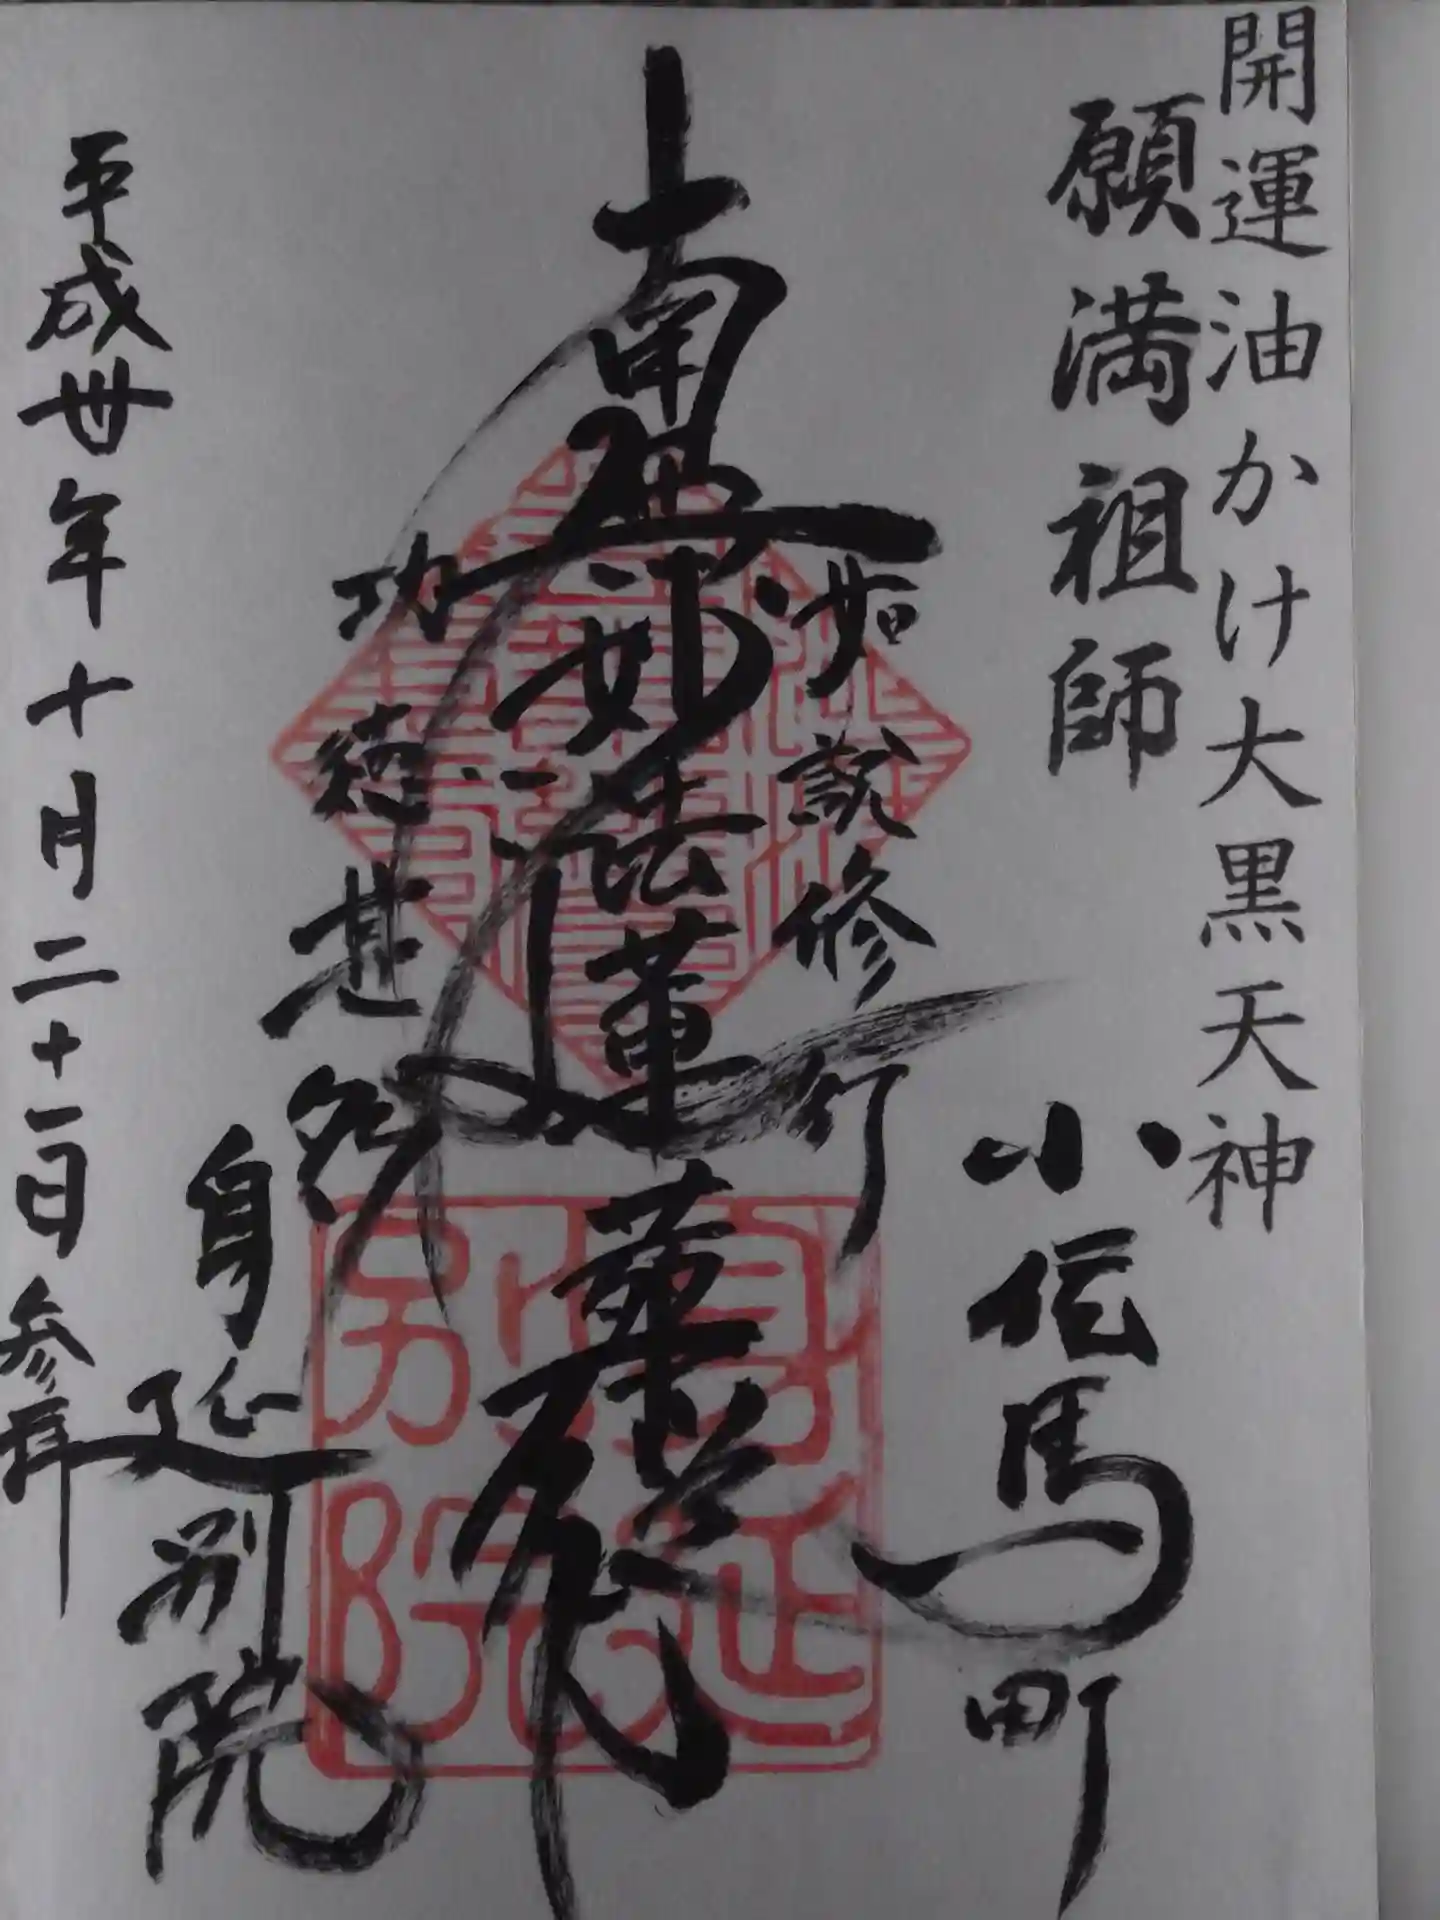 開運油かけ大黒天神
願満祖師
小伝馬町
如説修行
南無妙法蓮華経
功徳甚多
身延別院
平成卅年十月二十一日参拝
身延別院